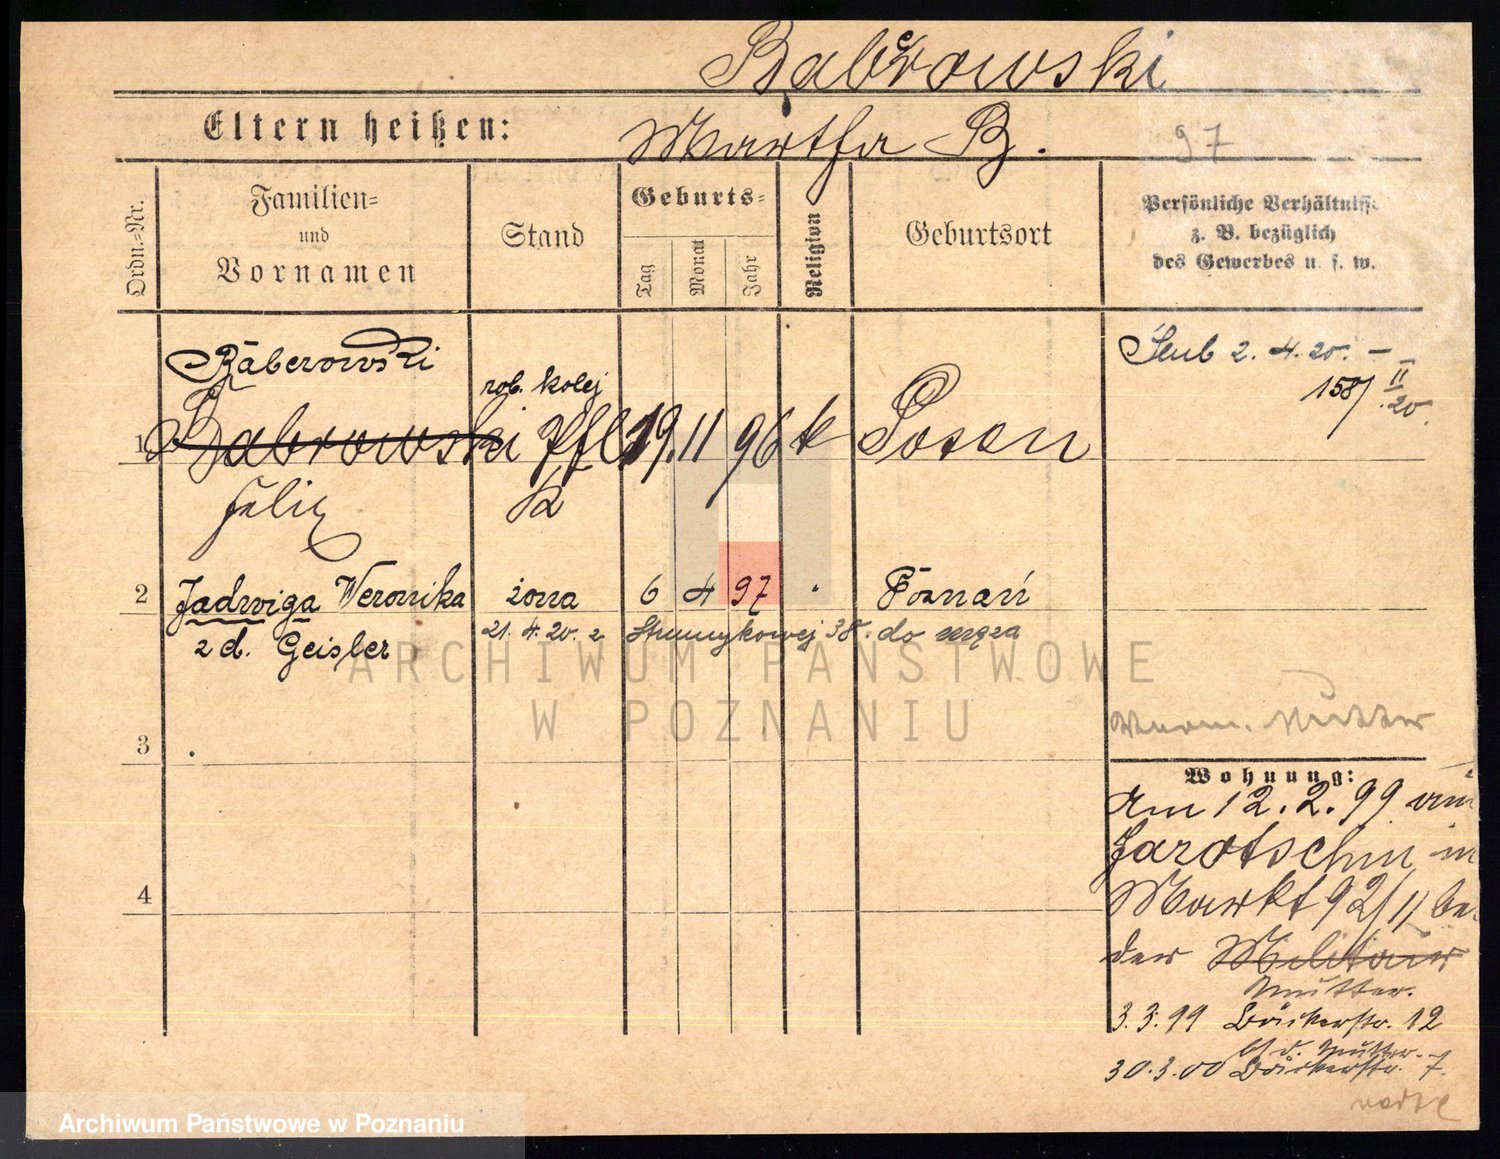 Baberowski
Eltern heißen: Martha B.
97
Ordn.-Nr.
Familien-
und
Vornamen
Stand
Geburts-
Tag
Monat
Jahr
Religion
Geburtsort
Persönliche Verhältnisse
z. B. bezüglich
des Gewerbes u. s. w.
Baberowski
rob. kolej
1 Babrowski Pfl. 19. 11 96 k Posen
Felix
2 Jadwiga Weronika żona 6 4 97 " Poznań
z d. Geisler
21. 4. 20. z Strumykowej 38. do męża
2. 4. 20. —
158/ II
20.
3
Mutter
Wohnung:
Am 12. 2. 99 aus
Jarotschin in
4
Markt 92/II bei
der Militair
Mutter.
3. 3. 99 Bäckerstr. 12
b/ d. Mutter.
30. 3. 00 Bäckerstr. 7.
ARCHIWUM PAŃSTWOWE
W POZNANIU
Archiwum Państwowe w Poznaniu